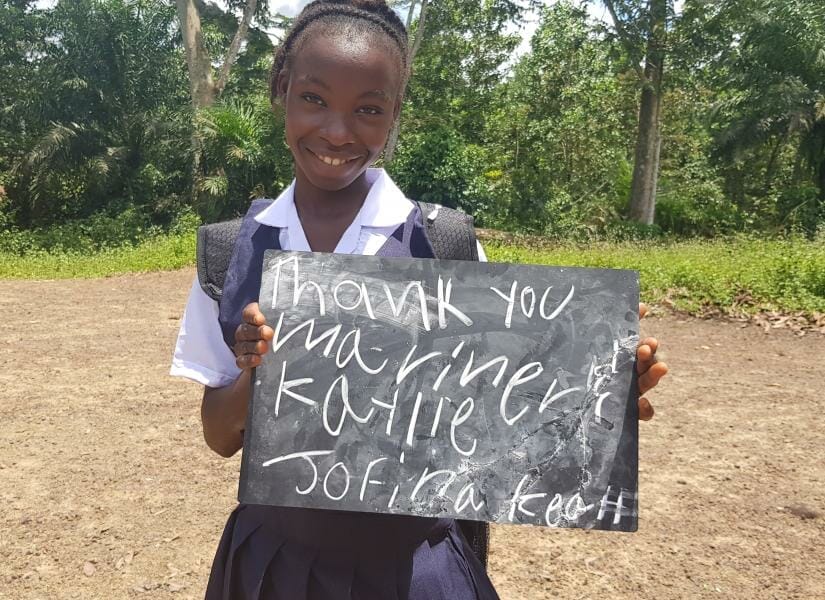 Thank you
mariner
Kaylie
Jofina Keah